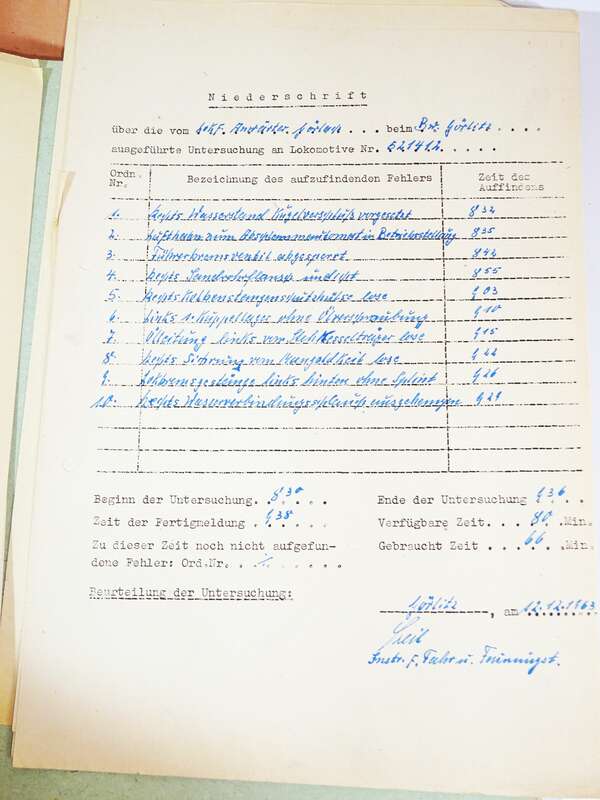 Niederschrift
über die vom Lokf. Anwärter . . . beim Bw. Görlitz . . . .
ausgeführte Untersuchung an Lokomotive Nr. 521412 . . . . .
Ordn. Nr. Bezeichnung des aufzufindenden Fehlers Zeit des Auffindens
1. Rechts Wasserstand Kugelverschluß vorgesetzt 8 32
2. Lufthahn zum in Betriebsstellung 8 35
3. Führerbremsventil abgesperrt 8 42
4. Rechts undicht 8 55
5. Rechts lose 9 03
6. Links 1. Kuppellager ohne Ölverschraubung 9 10
7. Ölleitung links vor Stehkesselträger lose 9 15
8. Rechts Sicherung vom lose 9 22
9. links hinten ohne Splint 9 26
10. Rechts ausgehangen 9 29
Beginn der Untersuchung. 8.30 . . . .
Ende der Untersuchung 9 36
Zeit der Fertigmeldung . 9.38 . . . .
Verfügbare Zeit. . . 80 . Min.
Zu dieser Zeit noch nicht aufgefun-
Gebraucht Zeit . . . . 66 . .Min.
dene Fehler: Ord.Nr. . . . . . . . .
Beurteilung der Untersuchung:
Görlitz, am 12.12.1963
Instr. f. Fahr u.